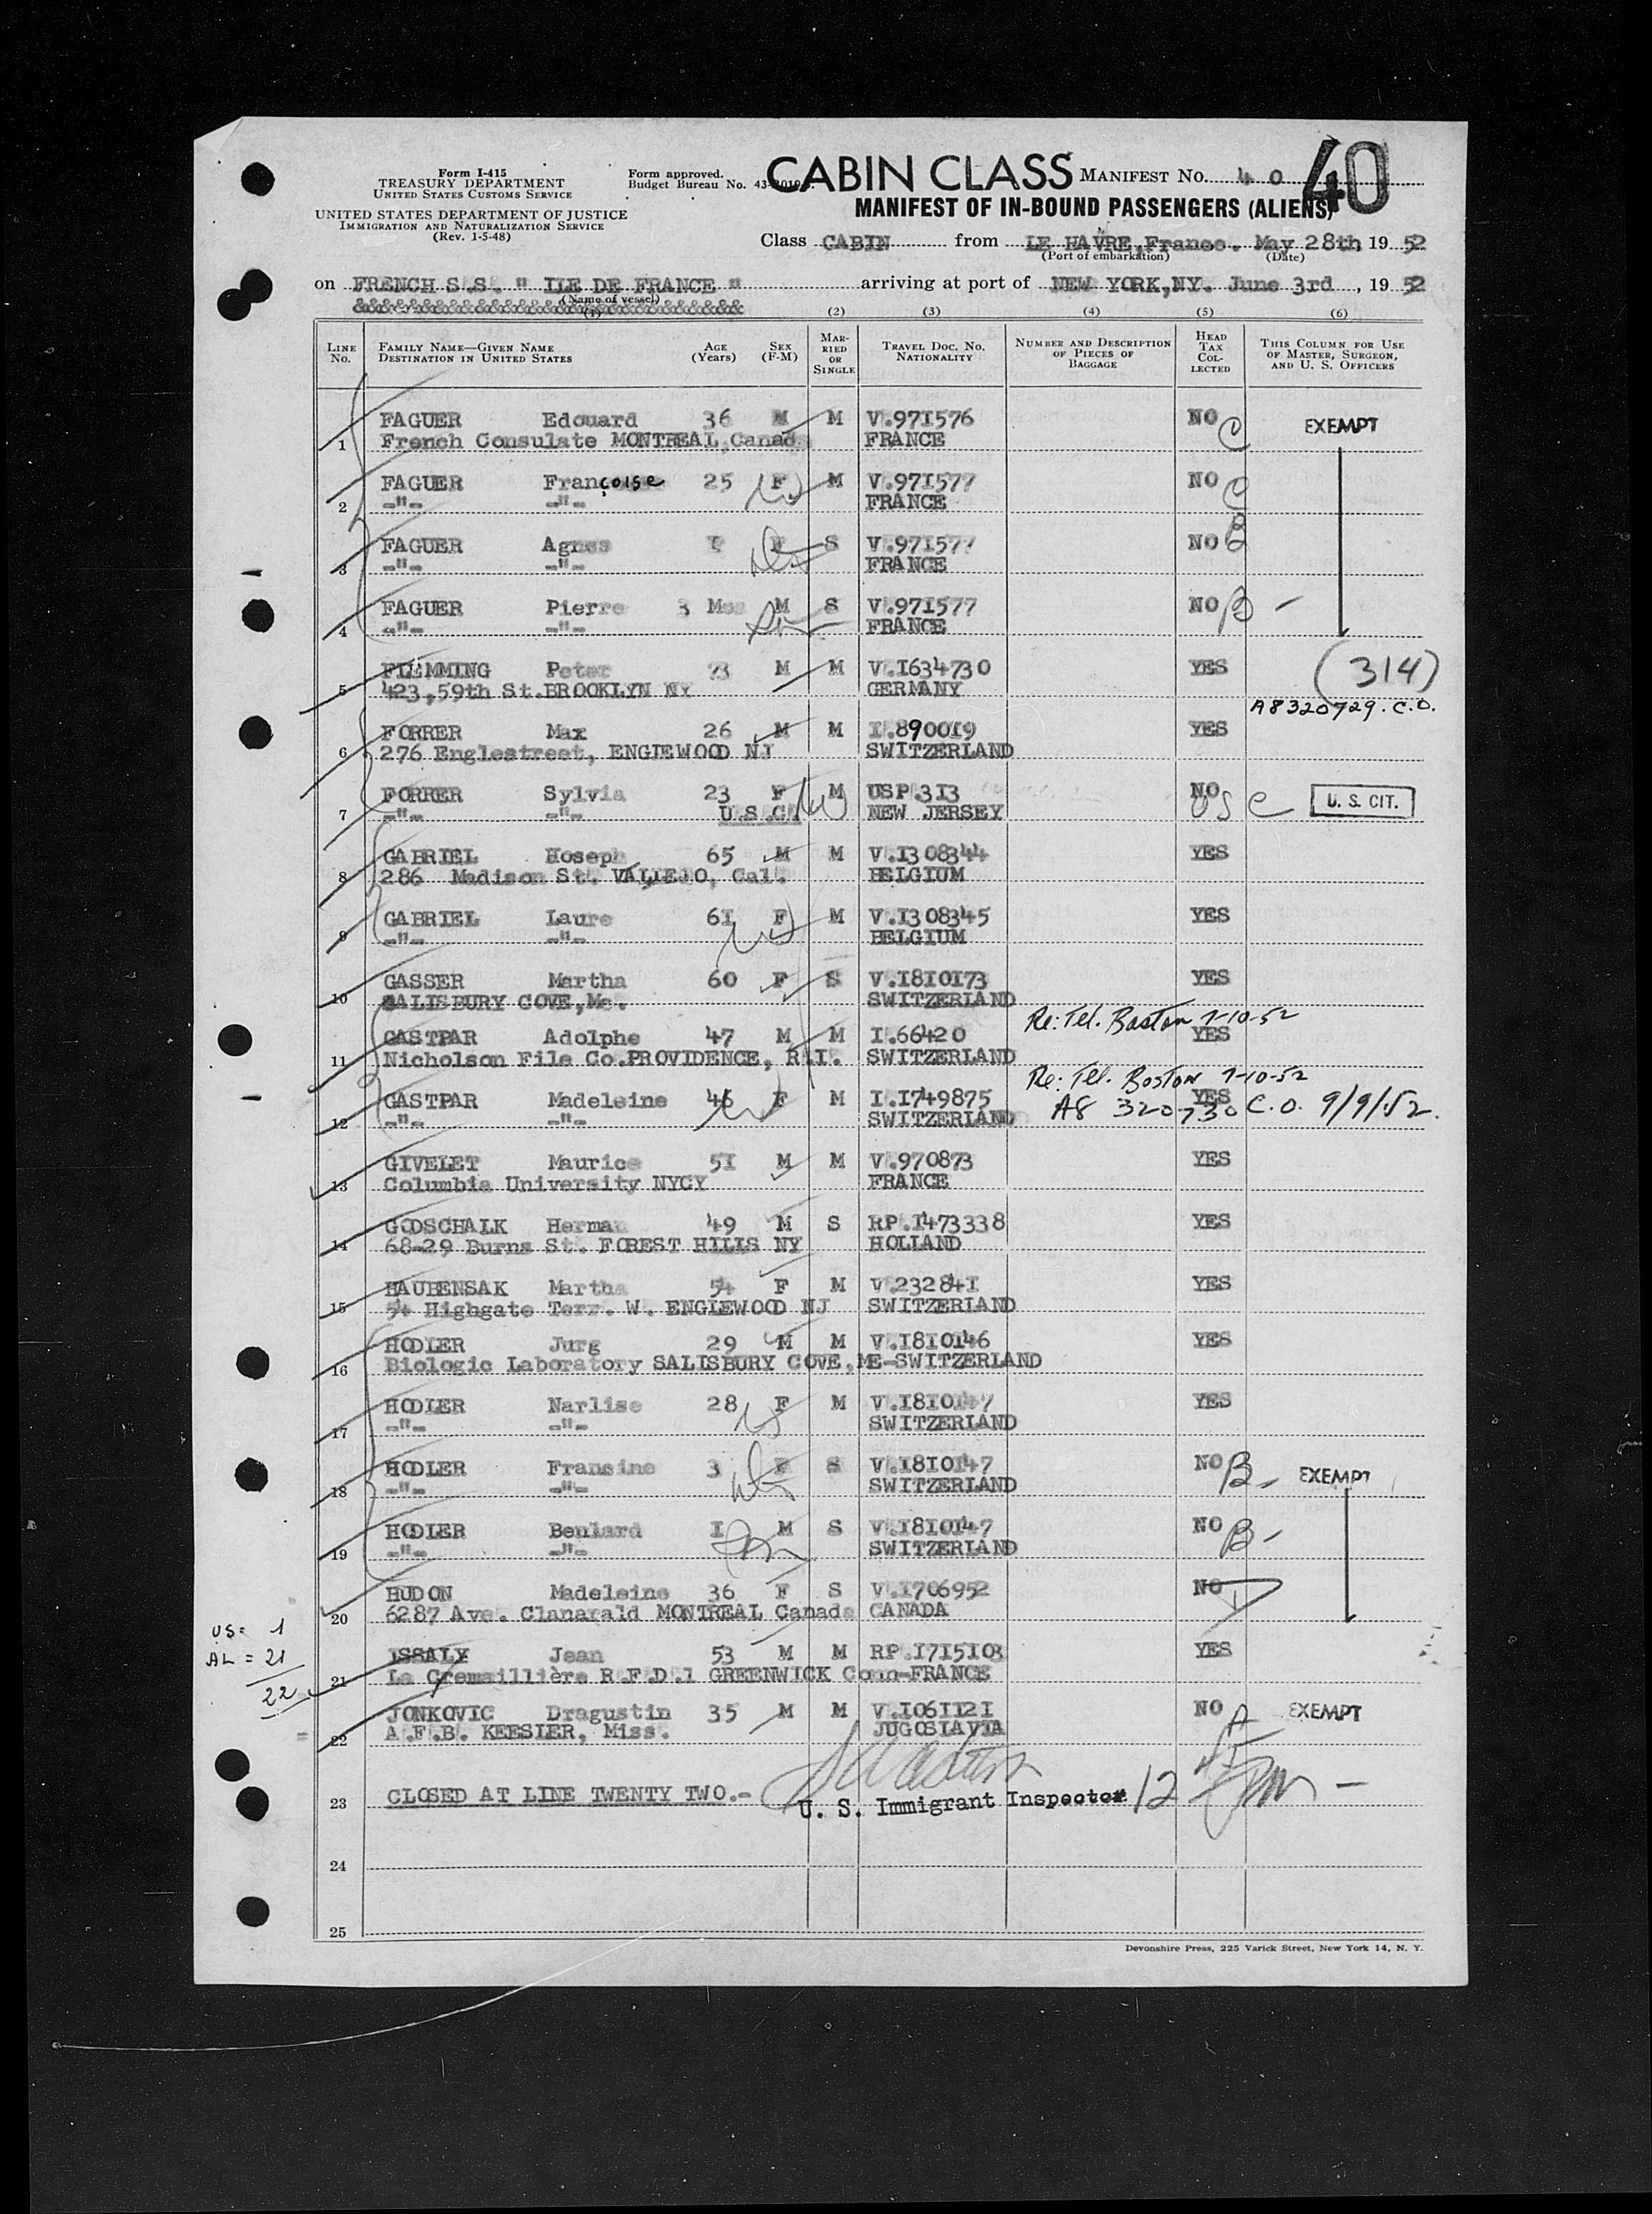 Form I-415
TREASURY DEPARTMENT
UNITED STATES CUSTOMS SERVICE
UNITED STATES DEPARTMENT OF JUSTICE
IMMIGRATION AND NATURALIZATION SERVICE
(Rev. 1-5-48)
Form approved.
Budget Bureau No.
CABIN CLASS
MANIFEST NO. 40
40
MANIFEST OF IN-BOUND PASSENGERS (ALIENS)
Class CABIN from LE HAVRE,France. May 28th, 19 52
(Port of embarkation) (Date)
on FRENCH S.S. " ILE DE FRANCE " arriving at port of NEW YORK,NY. June 3rd , 19 52
(Name of vessel)
(1) (2) (3) (4) (5) (6)
LINE No. FAMILY NAME—GIVEN NAME DESTINATION IN UNITED STATES AGE (Years) SEX (F-M) MARRIED OR SINGLE TRAVEL DOC. NO. NATIONALITY NUMBER AND DESCRIPTION OF PIECES OF BAGGAGE HEAD TAX COLLECTED THIS COLUMN FOR USE OF MASTER, SURGEON, AND U. S. OFFICERS
FAGUER Edouard 36 M M V.971576 NO C EXEMPT
1 French Consulate MONTREAL,Canad FRANCE
FAGUER Françoise 25 F M V.971577 NO C
2 -"- -"- FRANCE
FAGUER Agnes I F S V.971577 NO B
3 -"- -"- FRANCE
FAGUER Pierre 3 Mos M S V.971577 NO B -
4 -"- -"- FRANCE
FLEMMING Peter 23 M M V.1634730 YES (314)
5 423,59th St.BROOKLYN NY GERMANY
A8320729. C.O.
FORRER Max 26 M M I.890019 YES
6 276 Englestreet, ENGLEWOOD NJ SWITZERLAND
FORRER Sylvia 23 F M USP 313 NO USC U. S. CIT.
7 -"- -"- U.S.C. NEW JERSEY
GABRIEL Hoseph 65 M M V.1308344 YES
8 286 Madison St. VALLEJO, Cal. BELGIUM
GABRIEL Laure 61 F M V.1308345 YES
9 -"- -"- BELGIUM
GASSER Martha 60 F S V.1810173 YES
10 SALISBURY COVE,Me. SWITZERLAND
Re: Tel. Boston 7-10-52
GASTPAR Adolphe 47 M M I.66420 YES
11 Nicholson File Co.PROVIDENCE, R.I. SWITZERLAND
Re: Tel. Boston 7-10-52
GASTPAR Madeleine 46 F M I.1749875 YES
12 -"- -"- SWITZERLAND A8 320730 C.O. 9/9/52.
GIVELET Maurice 51 M M V.970873 YES
13 Columbia University NYCY FRANCE
GODSCHALK Herman 49 M S RP.1473338 YES
14 68-29 Burns St. FOREST HILLS NY HOLLAND
HAUBENSAK Martha 54 F M V.232841 YES
15 54 Highgate Terr. W. ENGLEWOOD NJ SWITZERLAND
HODLER Jurg 29 M M V.1810146 YES
16 Biologic Laboratory SALISBURY COVE,ME-SWITZERLAND
HODLER Narlise 28 F M V.1810147 YES
17 -"- -"- SWITZERLAND
HODLER Fransine 3 F S V.1810147 NO B- EXEMPT
18 -"- -"- SWITZERLAND
HODLER Benlard I M S V.1810147 NO B-
19 -"- -"- SWITZERLAND
HUDON Madeleine 36 F S V.1706952 NO
20 6287 Ave. Clanarald MONTREAL Canada CANADA
US= 1
AL = 21
22
ISSALY Jean 53 M M RP.1715108 YES
21 La Cremaillière R.F.D.1 GREENWICK Conn-FRANCE
JONKOVIC Dragustin 35 M M V.1061121 NO A EXEMPT
22 A.F.B. KEESLER, Miss. JUGOSLAVIA
23 CLOSED AT LINE TWENTY TWO.-
U. S. Immigrant Inspector 12
24
25
Devonshire Press, 225 Varick Street, New York 14, N. Y.